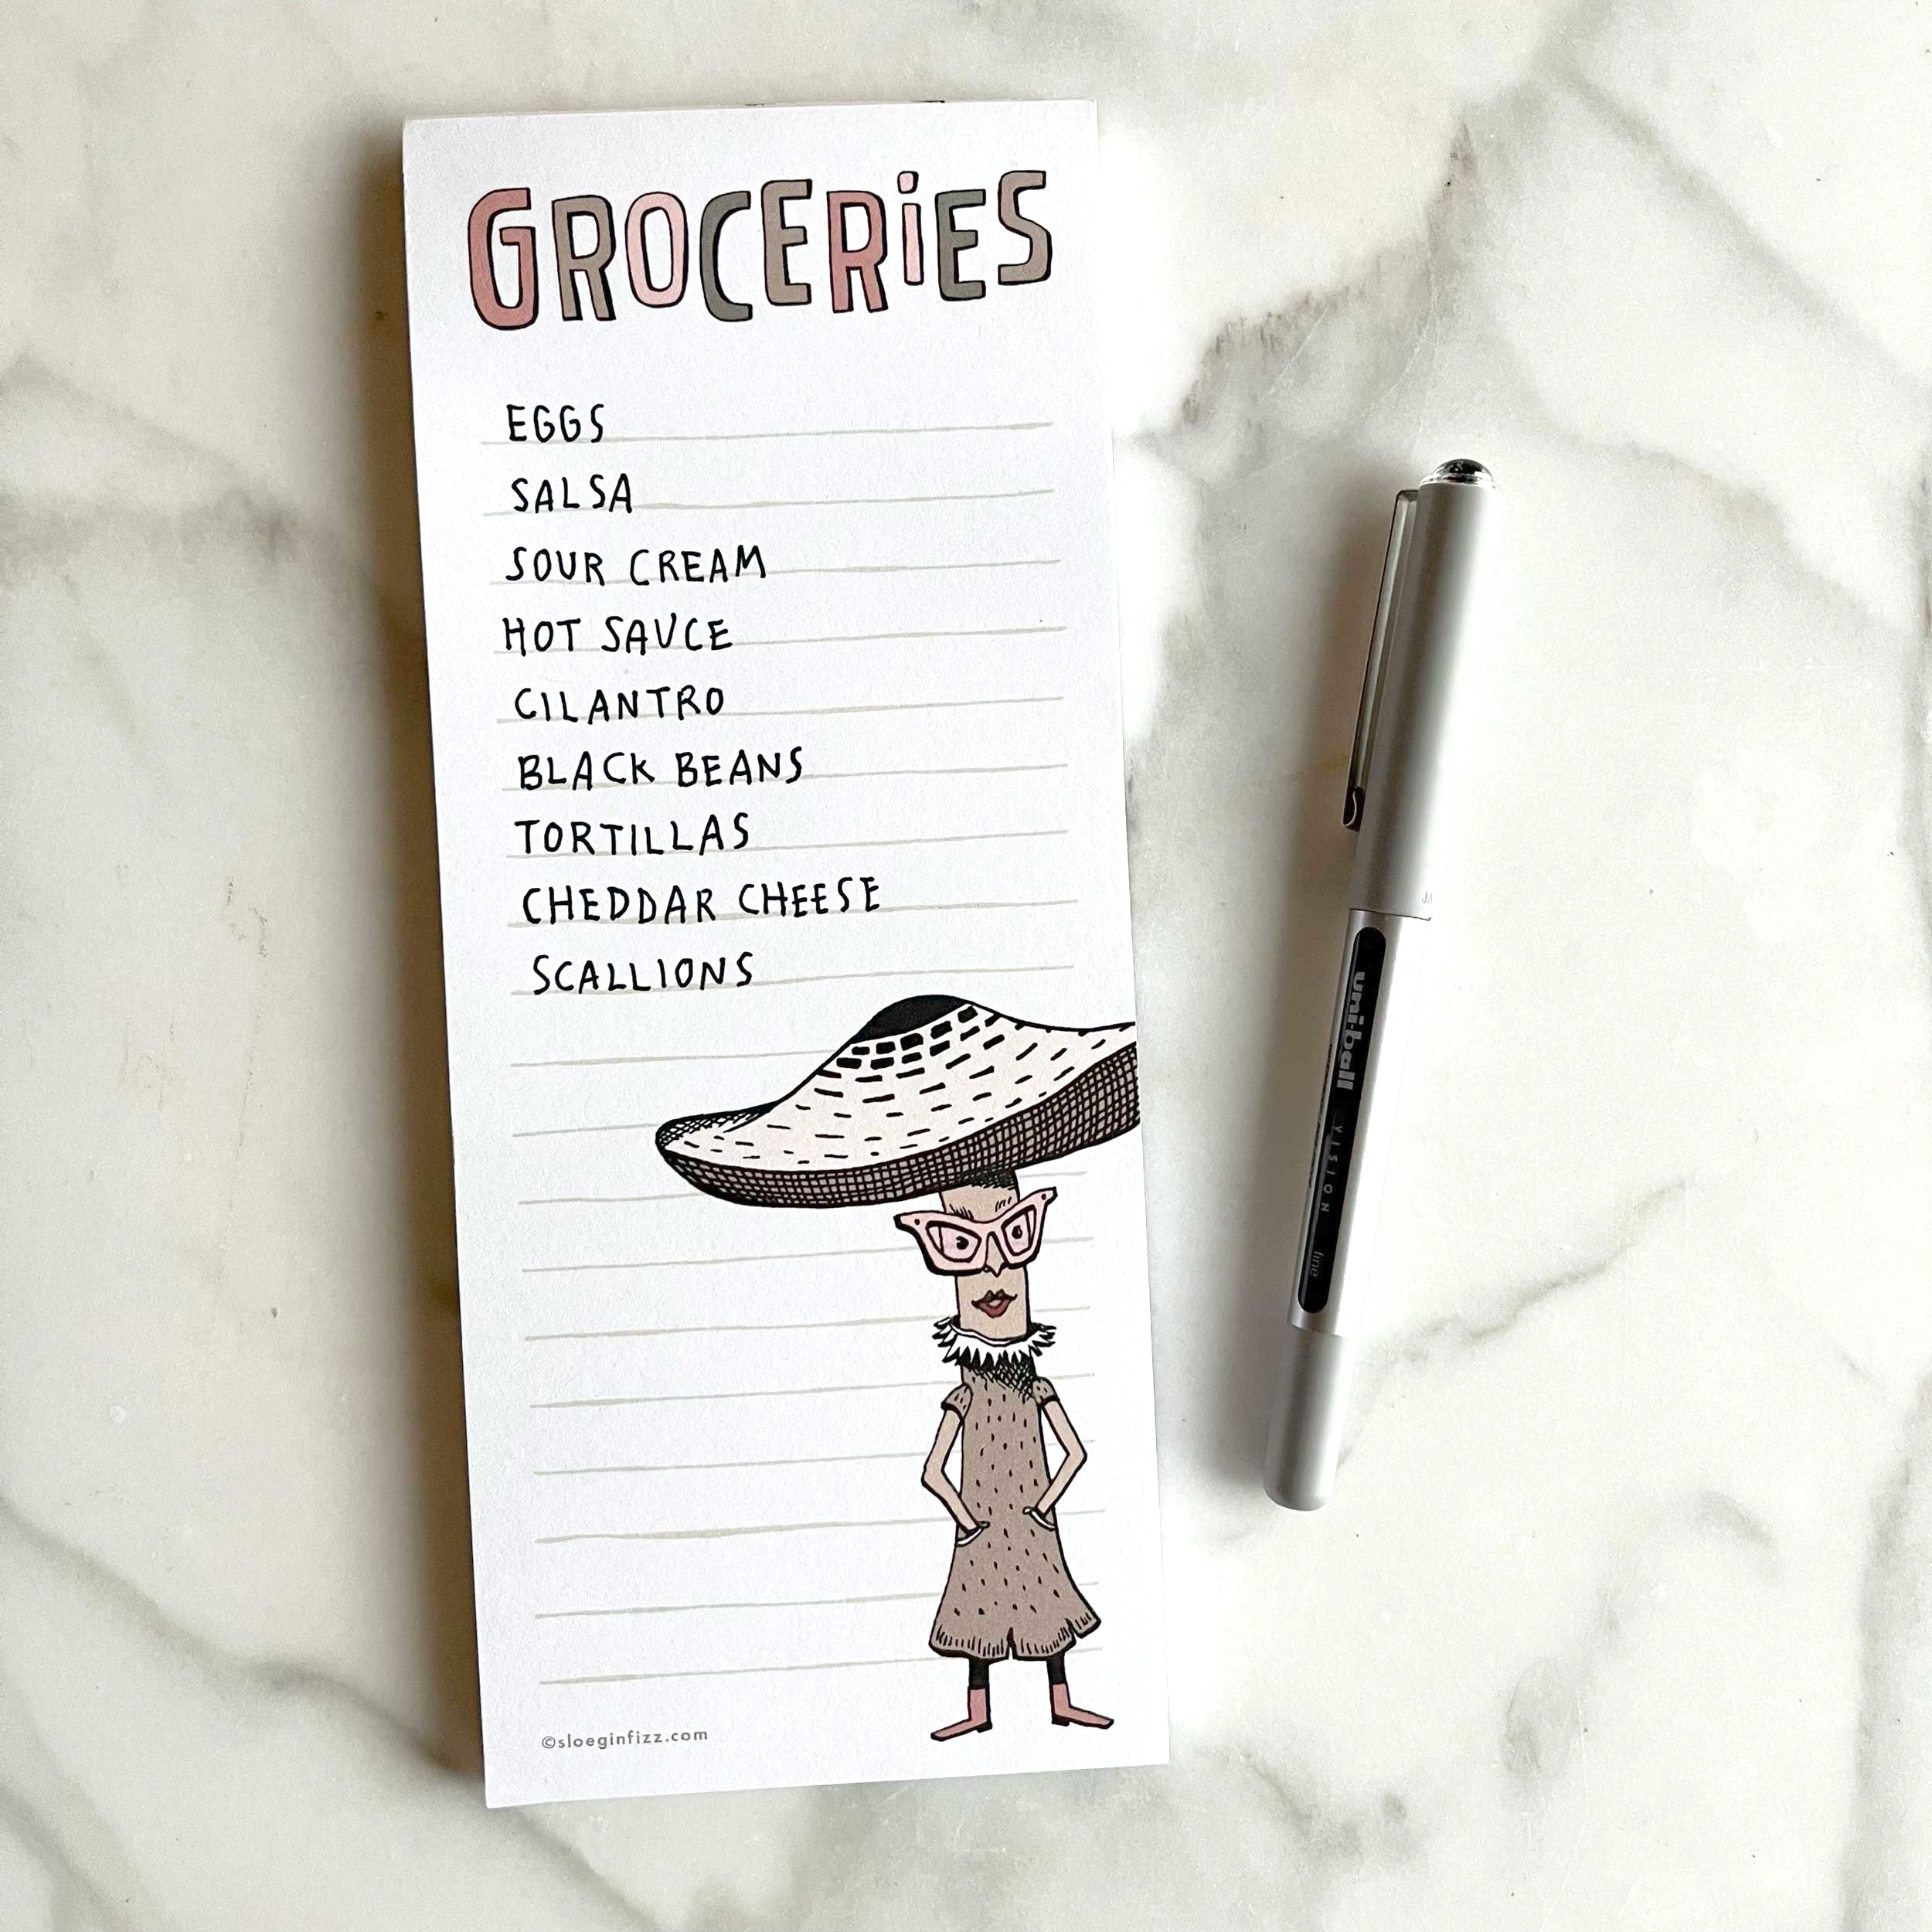 GROCERiES
EGGS
SALSA
SOUR CREAM
HOT SAUCE
CILANTRO
BLACK BEANS
TORTILLAS
CHEDDAR CHEESE
SCALLIONS
©sloeginfizz.com
uni-ball VISION fine